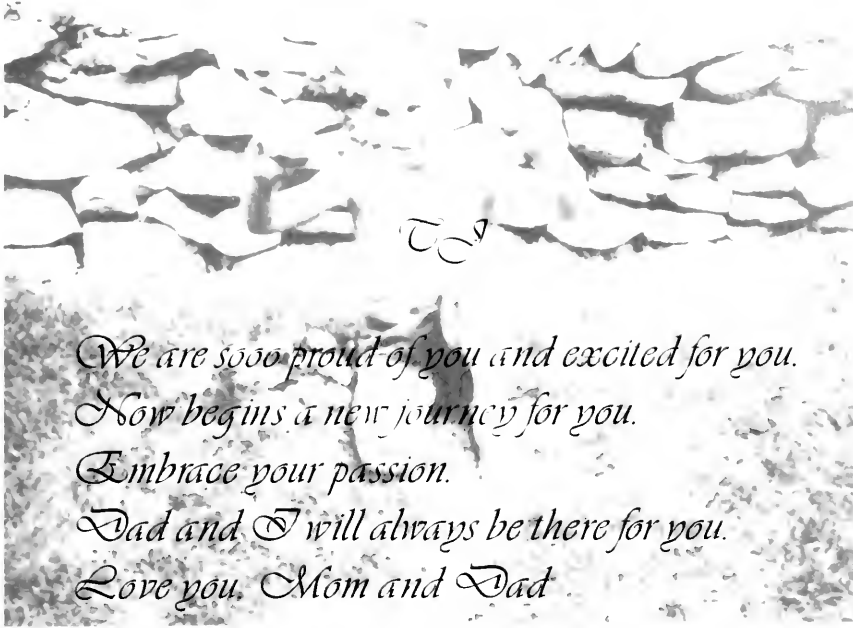 TJ
We are sooo proud of you and excited for you.
Now begins a new journey for you.
Embrace your passion.
Dad and I will always be there for you.
Love you. Mom and Dad